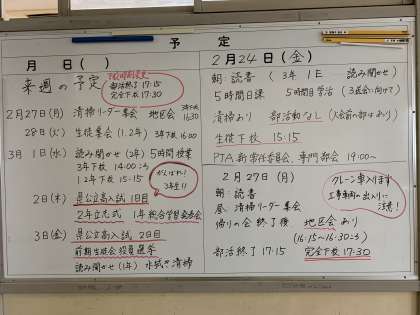 予定
月 日( )
来週の予定
下校時刻変更
部活終了 17:15
完全下校 17:30
2月27日(月) 清掃リーダー集会 地区会 3年下校 16:30
28日(火) 生徒集会(1.2年) 3年下校 16:00
3月1日(水) 読み聞かせ(2年) 5時間授業
3年下校 14:00
1.2年下校 15:15
がんばれ!
3年生!!
2日(木) 県公立高入試1日目
2年立志式 1年総合学習発表会
3日(金) 県公立高入試2日目
前期生徒会役員選挙
読み聞かせ(1年) 水拭き清掃
2月24日(金)
朝:読書 〈3年1E 読み聞かせ〉
5時間日課 5時間目学活(3送会に向けて)
清掃あり 部活動なし(大会前の部はあり)
生徒下校 15:15
PTA 新常任委員会、専門部会 19:00〜
2月27日(月)
朝:読書
昼 清掃リーダー集会
帰りの会終了後 地区会あり
(16:15〜16:30)
部活終了 17:15 完全下校 17:30
クレーン車入ります
工事車両の出入りに
注意!